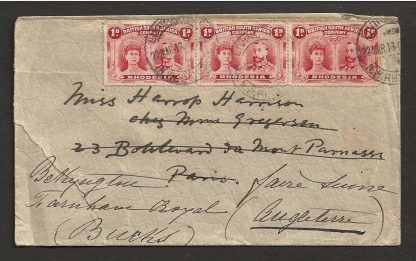 1ᵈ BRITISH SOUTH AFRICA COMPANY 1ᵈ
RHODESIA
1ᵈ BRITISH SOUTH AFRICA COMPANY 1ᵈ
RHODESIA
1ᵈ BRITISH SOUTH AFRICA COMPANY 1ᵈ
RHODESIA
Miss Harrop Harrison
chez Mme
23 Boulevard du Mont Parnasse
Paris. faire suivre
Farnham Royal (Angleterre)
(Bucks)